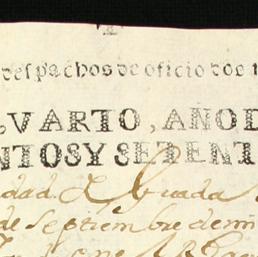 despachos de oficio dos
VARTO, AÑOD
NTOSY SETENT
dad. de Guada
de septiembre demi